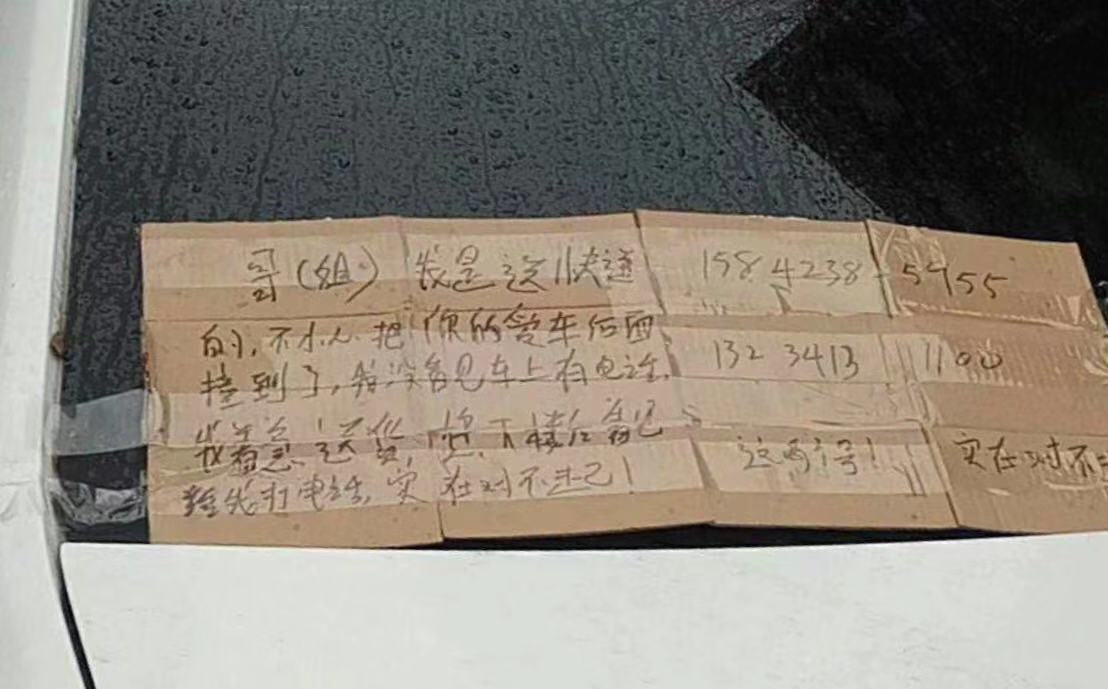 哥(姐) 我是送快递
的,不小心把你的爱车后面
撞到了,我没看见车上有电话,
我着急送货,您下楼后看见
给我打电话,实在对不起!
158 4238 5955
132 3413 1100
这两个号!
实在对不